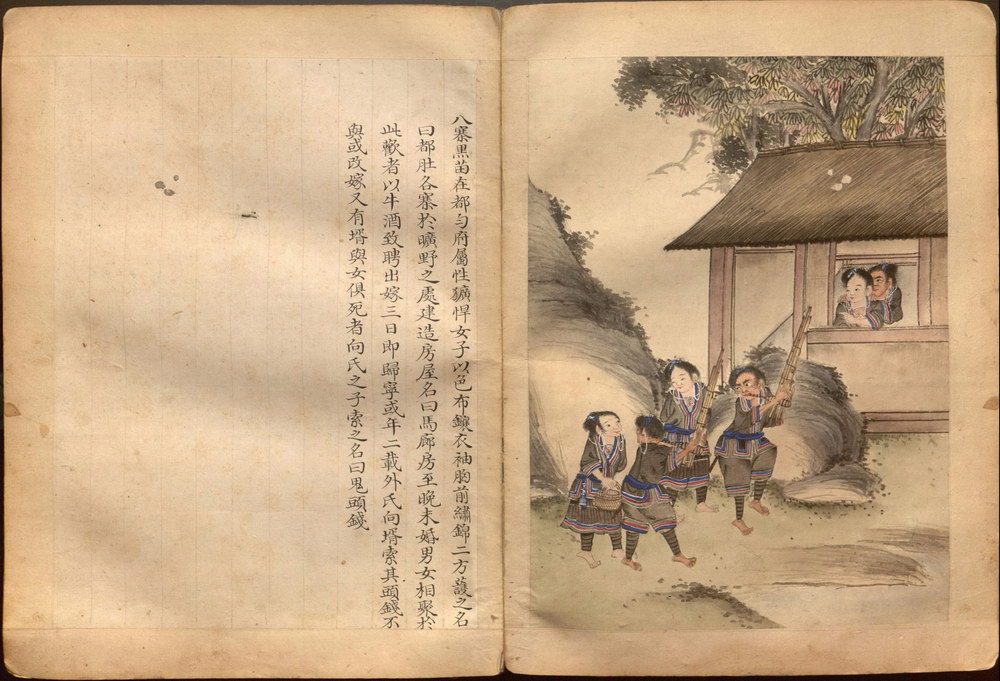 八寨黑苗在都勻府屬性獷悍女子以色布鑲衣袖胸前繡錦二方護之名
曰都肚各寨於曠野之處建造房屋名曰馬廊房至晚未婚男女相聚於
此歡者以牛酒致聘出嫁三日即歸寧或年二載外氏向壻索其頭錢不
與或改嫁又有壻與女俱死者向氏之子索之名曰鬼頭錢